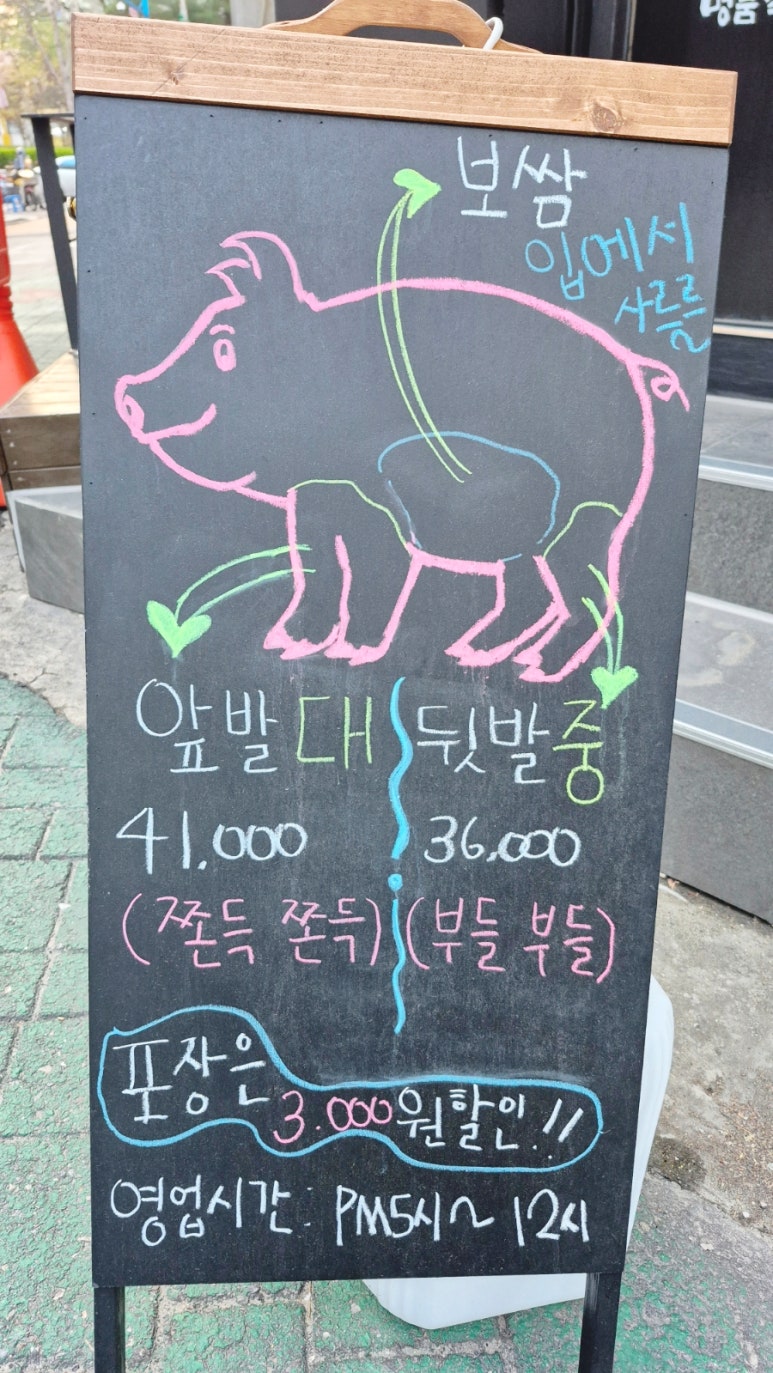 보쌈
입에서
사르르~
앞발 대
41.000
(쫀득 쫀득)
뒷발 중
36.000
(부들 부들)
포장은
3.000원 할인!!
영업시간 : PM5시~12시